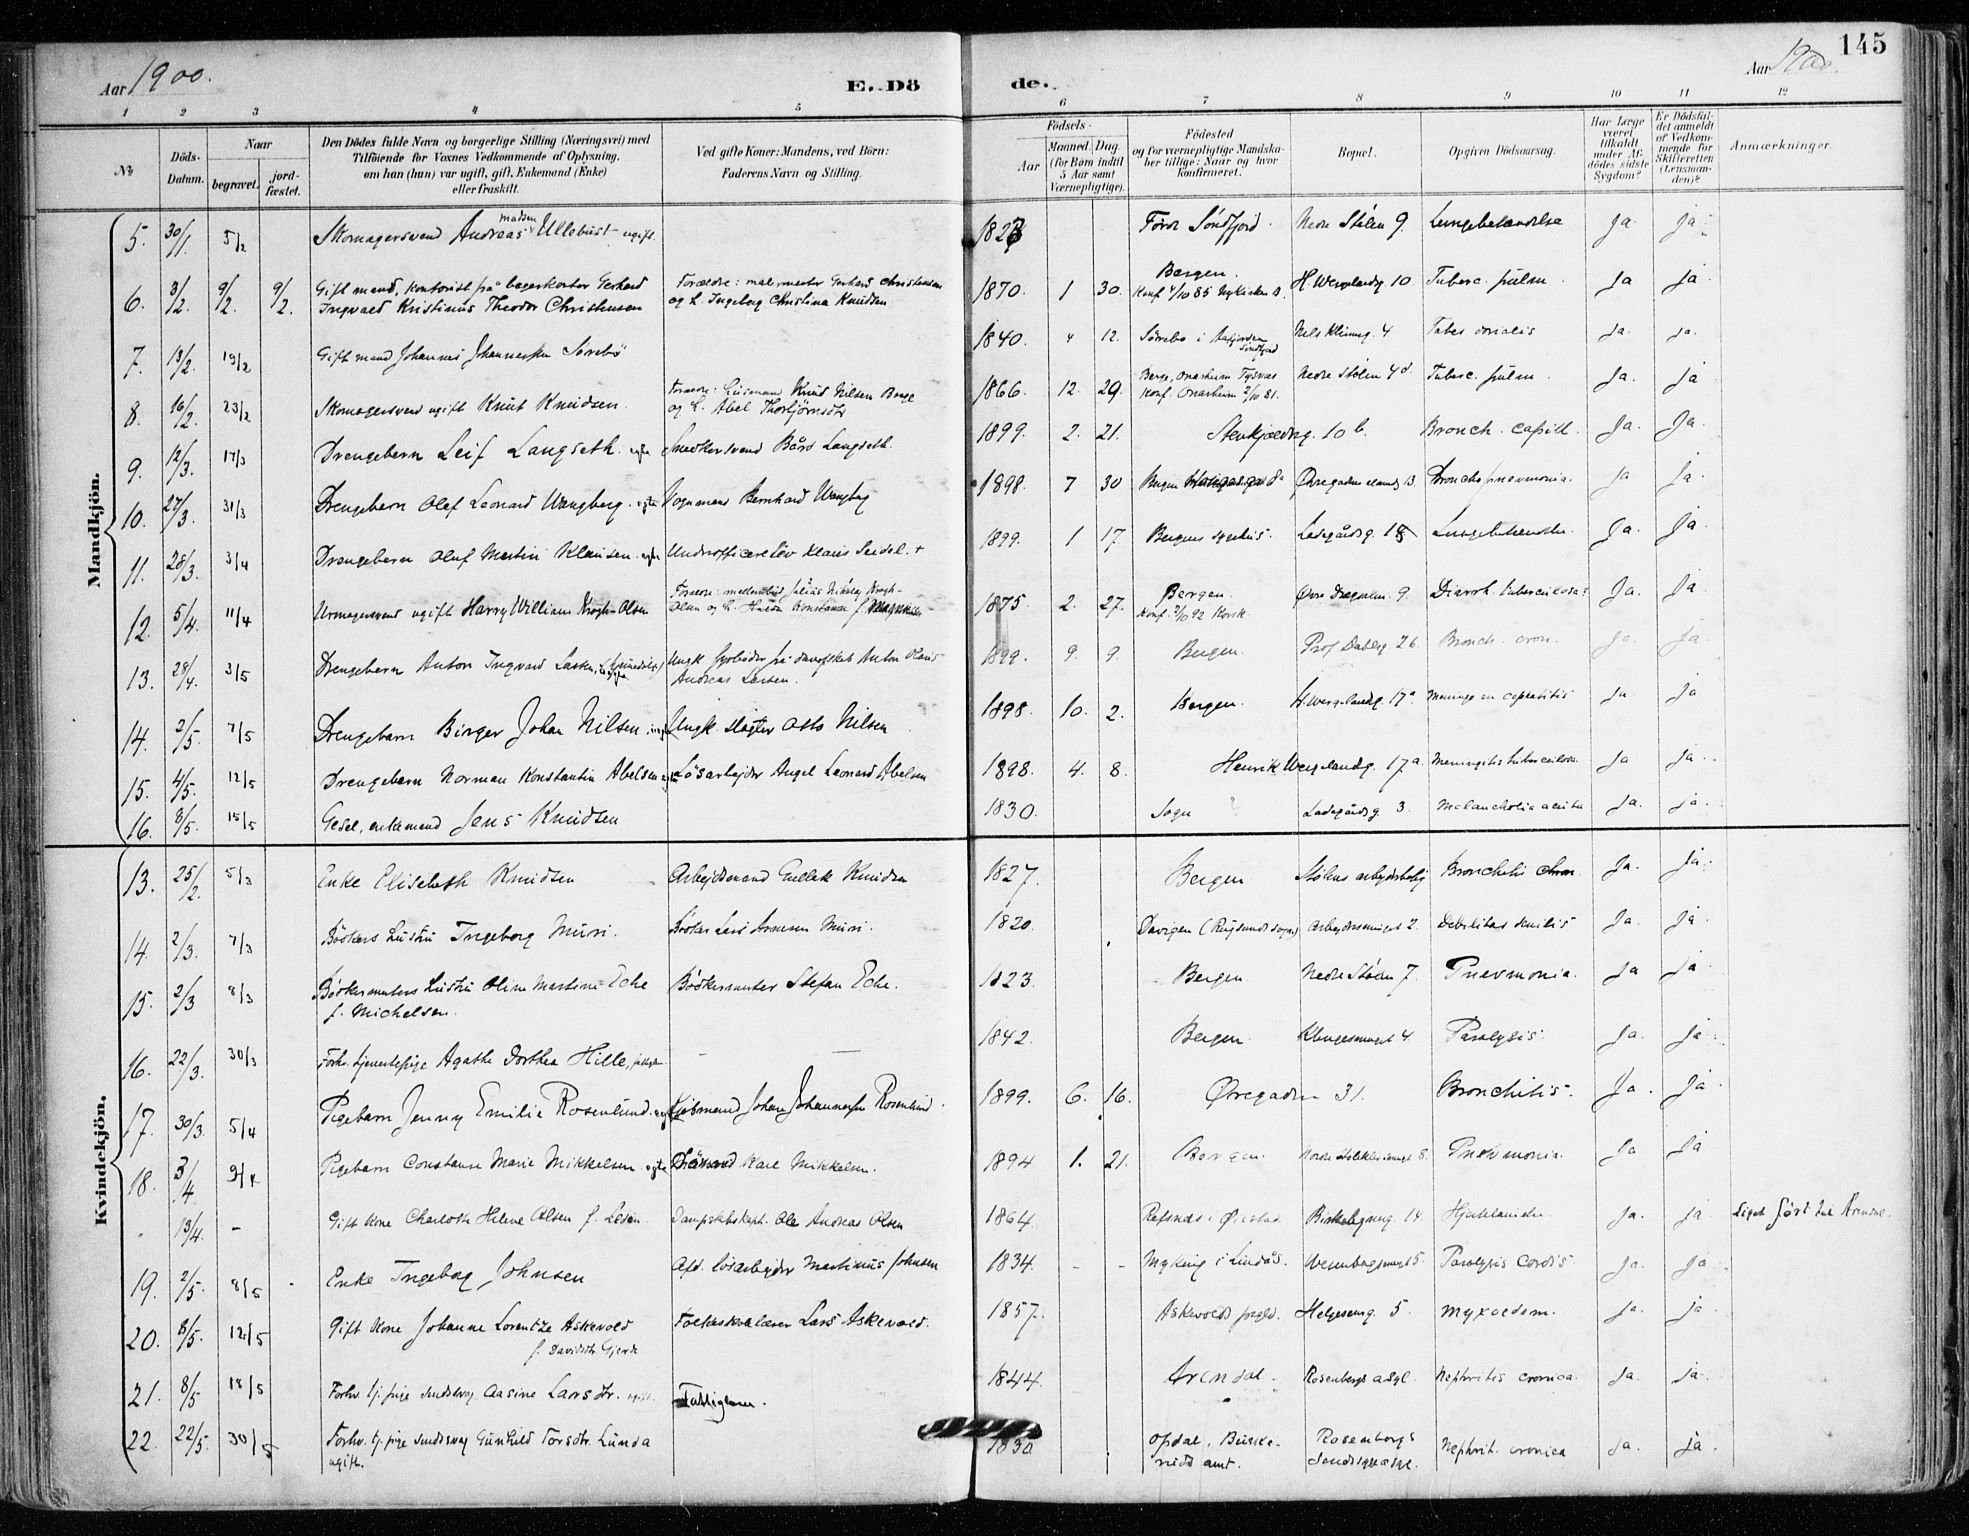 Aar 1900.
E. Dö
de.
Aar 1900.
145
1 2 3 4 5 6 7 8 9 10 11 12
№
Döds-Datum.
Naar
begravet.
jord-fæstet.
Den Dödes fulde Navn og borgerlige Stilling (Næringsvei) med
Tilföiende for Voxnes Vedkommende af Oplysning,
om han (hun) var ugift, gift, Enkemand (Enke)
eller fraskilt.
Ved gifte Koner: Mandens, ved Börn:
Faderens Navn og Stilling.
Födsels-
Aar
Maaned. Dag.
(for Børn indtil
5 Aar samt
Værnepligtige).
Födested
og for værnepligtige Mandska-
ber tillige: Naar og hvor
Konfirmeret.
Bopæl.
Opgiven Dödsaarsag.
Har Læge
været
tilkaldt
under Af-
dödes sidste
Sygdom?
Er Dödsfal-
det anmeldt
af Vedkom-
mende for
Skifteretten
(Lensman-
den)?
Anmærkninger.
Mandkjön.
5. 30/1 5/2 Skomagersvend Andreas Madsen Ullebust ugift. 1823 Förde Söndfjord. Nedre Stölen 9. Lungebetændelse Ja. Ja.
6. 3/2. 9/2. 9/2. Gift mand, kontorist på lagerkontor Gerhard
Ingvald Kristinus Theodor Christensen Forældre: malermester Gerhard Christensen
og h. Ingeborg Christina Knudsen 1870. 1 30. Bergen.
Konf 4/10 85 Nykirken B. H. Wergelandsg 10 Tuberc. pulm. Ja ja
7. 13/2. 19/2 Gift mand Johannes Johannessen Sörebö 1840. 4 12. Sörebø i Aafjorden
Söndfjord Nels Klimsg. 4 Tabes dorsalis Ja. ja.
8. 16/2. 23/2 Skomagersvend ugift Knut Knudsen. Forældre: Husmand Knud Nilsen Berge
og h. Abel Thorbjörnsdtr 1866. 12. 29. Berge, Onarheim Tysnes
Konf. Onarheim 2/10 81. Nedre Stölen 4d. Tuberc. pulm. Ja. ja
9. 12/3. 17/3 Drengebarn Leif Langseth. egte Snedkersvend Bård Langseth. 1899. 2. 21. Stenkjeldsg. 10 b. Bronch. capill. Ja. Ja.
10. 27/3. 31/3 Drengebarn Olaf Leonard Wangberg. egte Vognmand Bernhard Wangberg 1898. 7 30 Bergen Øvregadens alm. 13. Bronchopnevmonia. Ja Ja.
11. 28/3. 3/4 Drengebarn Oluf Martin Klausen egte Underofficer Klaus Seidel. + 1899. 1 17. Bergens sygehus. Ladegårdsg. 18 Lungebetændelse. Ja. Ja.
12. 5/4. 11/4 Urmagersvend ugift Harry William Krogh-Olsen Forældre: Julius Nikolay Krogh-
Olsen og h. Hulda Konstanse f. Magnussen 1875 2. 27. Bergen.
Konf. 2/10 92 Korsk Øvre Dregsalm. 9. Diarrh. tuberculosa? Ja. Ja
13. 28/4. 3/5 Drengebarn Anton Ingvard Larsen, uegte Ungk. fyrböder på dampskib Anton Olaus
Andreas Larsen. 1899. 9. 9. Bergen. Prof Dahlsg. 26 Bronch. cron. Ja. Ja.
14. 2/5. 7/5 Drengebarn Birger Johan Nilsen. uegte Ungk. slagter Otto Nilsen 1898. 10. 2. Bergen. H. Wergelandsg. 17a Mening en cephalitis Ja Ja
15. 4/5. 12/5 Drengebarn Norman Konstantin Abelsen egte Løsarbejder Angel Leonard Abelsen 1898. 4. 8. Henrik Wergelandsg. 17a. Meningitis tuberculosa Ja Ja.
16. 8/5. 15/5 Gesel, enkemand Jens Knudsen 1830. Sogn ? Ladegårdsg. 3. Melancholia acuta Ja. ja.
Kvindekjön.
13. 25/2. 5/3 Enke Elisabeth Knudsen Arbejdsmand Gullek Knudsen 1827. Bergen Stølens arbejderbolig Bronchitis chron. Ja. ja.
14. 2/3. 7/3 Bödkers hustru Ingeborg Muri. Bödker Lars Arnesen Muri. 1820. Davigen (Rugsunds sogn) Arbejdersmuget 2. Debilitas senilis Ja. Ja.
15. 2/3 8/3 Bödkermesters hustru Oline Martine Eche
f. Michelsen. Bödkermester Stefan Eche. 1823. Bergen Nedre Stölen 7. Pnevmonia. Ja Ja
16. 22/3. 30/3 Forhv. tjenestepige Agathe Dorthea Hille, fattiglem – – 1842. Bergen Klingesmuget 4 Paralysis. Ja. ja.
17. 30/3. 5/4 Pigebarn Jenny Emilie Rosenlund. egte Kjöbmand Johan Johannessen Rosenlund. 1899. 6. 16. Øvregaden 31. Bronchitis. Ja. Ja
18. 3/4 9/4. Pigebarn Constanse Marie Mikkelsen egte Karl Mikkelsen. 1894 1. 21. Bergen. Nedre Blekeveismuget 8. Pnevmonia. Ja Ja
" 13/4. – Gift Kone Charlotte Helene Olsen f. Dampskibskapt. Ole Andreas Olsen 1864. Refsnæs i Øiestad. Birkelsgmug. 14. Hjertelammelse. Ja. ja. Liget fört til Arendal.
19. 2/5. 8/5 Enke Ingeborg Johnsen Afd. løsarbejder Martinus Johnsen 1834. – – Myking i Lindås. Wesenbergsmuget 5. Paralysis cordis Ja. Ja
20. 8/5. 12/5 Gift Kone Johanne Lorentze Askevold
f. Davidsdtr. Gjerde Folkeskolelærer Lars Askevold. 1857. Askevolds prgld. Helgesensg. 5. Myxoedem. Ja. ja.
21. 8/5 18/5 Forhv. tj. pige sindssyg Aasine Larsdtr. ugift. Fattiglem. 1844. Arendal. Rosenbergs asyl. Nephritis cronica. Ja. ja.
22. 22/5. 30/5 Forhv. tj. pige sindssyg Gunhild Torsdtr. Lunda
ugift. 1830 Opdal, Buske-
ruds amt. Rosenbergs
Sindssygeasyl. Nephrit. cronica Ja. ja